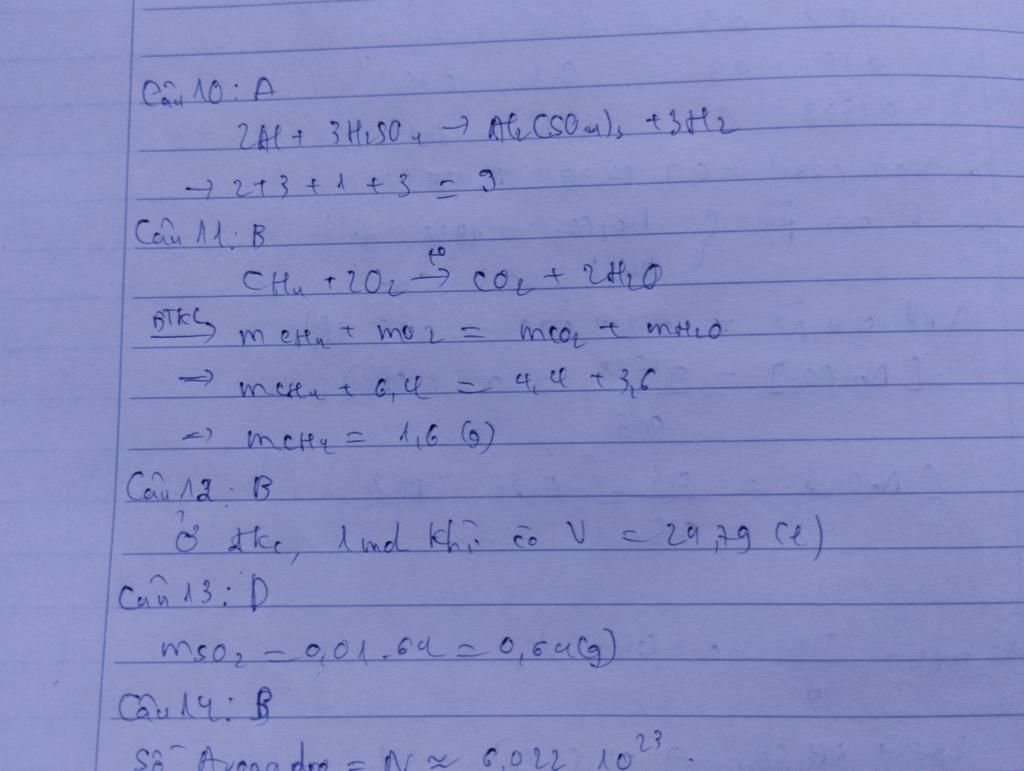 Câu 10: A
2Al + 3H₂SO₄ → Al₂(SO₄)₃ + 3H₂
→ 2+3+1+3 = 9
Câu 11: B
CH₄ + 2O₂ –t°→ CO₂ + 2H₂O
BTKL→ mCH₄ + mO₂ = mCO₂ + mH₂O
⇒ mCH₄ + 6,4 = 4,4 + 3,6
⇒ mCH₄ = 1,6 (g)
Câu 12: B
Ở đkc, 1 mol khí có V = 24,79 (l)
Câu 13: D
mSO₂ = 0,01.64 = 0,64(g)
Câu 14: B
Số Avogadro = N ≈ 6,022 10²³.